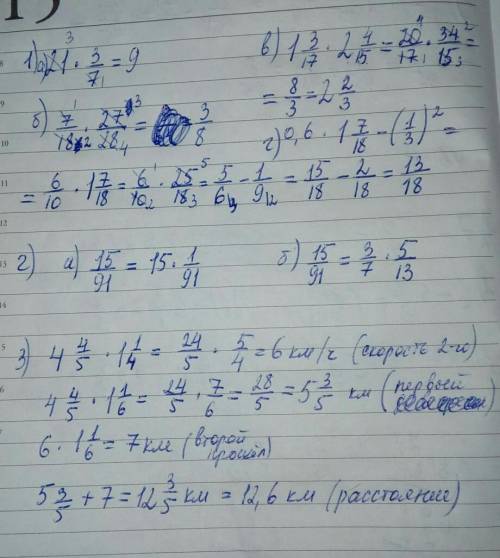 1) а) 21 · 3/7 = 9    в) 1 3/17 · 2 4/15 = 20/17 · 34/15 =
= 8/3 = 2 2/3
б) 7/18 · 27/28 = 3/8    г) 0,6 · 1 7/18 − (1/3)² =
= 6/10 · 1 7/18 = 6/10 · 25/18 = 5/6 − 1/9 = 15/18 − 2/18 = 13/18
2) а) 15/91 = 15 · 1/91    б) 15/91 = 3/7 · 5/13
3) 4 4/5 · 1 1/4 = 24/5 · 5/4 = 6 км/ч (скорость 2-го)
4 4/5 · 1 1/6 = 24/5 · 7/6 = 28/5 = 5 3/5 км (первый
6 · 1 1/6 = 7 км (второй прошёл)
5 3/5 + 7 = 12 3/5 км = 12,6 км (расстояние)